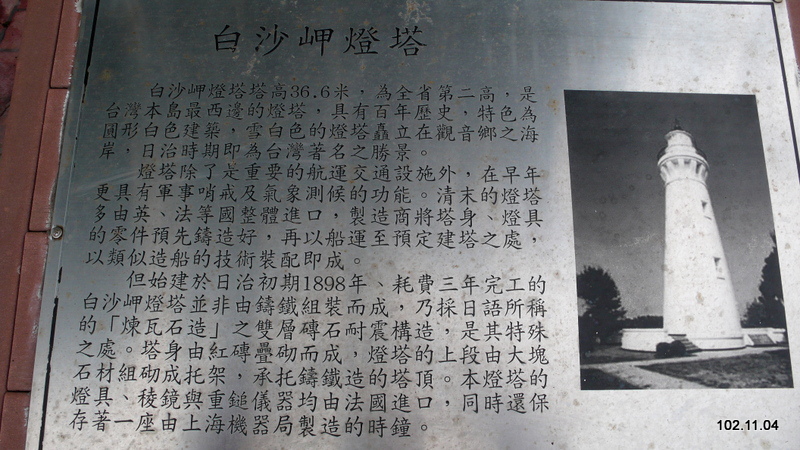 白沙岬燈塔
白沙岬燈塔塔高36.6米，為全省第二高，是
台灣本島最西邊的燈塔，具有百年歷史，特色為
圓形白色建築，雪白色的燈塔矗立在觀音鄉之海
岸，日治時期即為台灣著名之勝景。
燈塔除了是重要的航運交通設施外，在早年
更具有軍事哨戒及氣象測候的功能。清末的燈塔
多由英、法等國整體進口，製造商將塔身、燈具
的零件預先鑄造好，再以船運至預定建塔之處，
以類似造船的技術裝配即成。
但始建於日治初期1898年、耗費三年完工的
白沙岬燈塔並非由鑄鐵組裝而成，乃採日語所稱
的「煉瓦石造」之雙層磚石耐震構造，是其特殊
之處。塔身由紅磚疊砌而成，燈塔的上段由大塊
石材組砌成托架，承托鑄鐵造的塔頂。本燈塔的
燈具、稜鏡與重鎚儀器均由法國進口，同時還保
存著一座由上海機器局製造的時鐘。
102.11.04